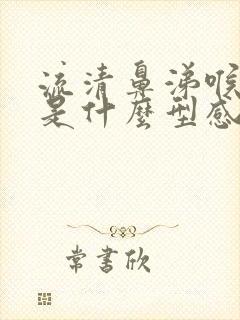 流清鼻涕喉
是什麼型感
常書欣